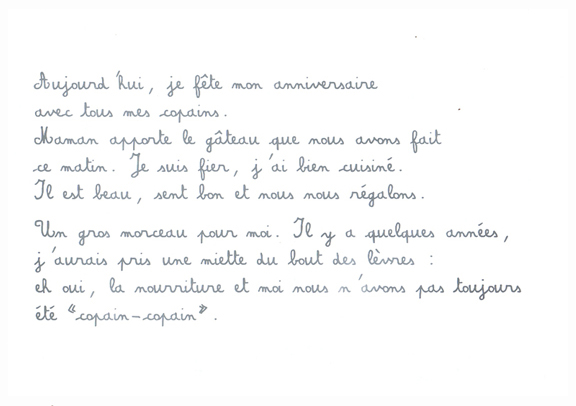 Aujourd'hui, je fête mon anniversaire
avec tous mes copains.
Maman apporte le gâteau que nous avons fait
ce matin. Je suis fier, j'ai bien cuisiné.
Il est beau, sent bon et nous nous régalons.
Un gros morceau pour moi. Il y a quelques années,
j'aurais pris une miette du bout des lèvres :
eh oui, la nourriture et moi nous n'avons pas toujours
été “copain-copain”.